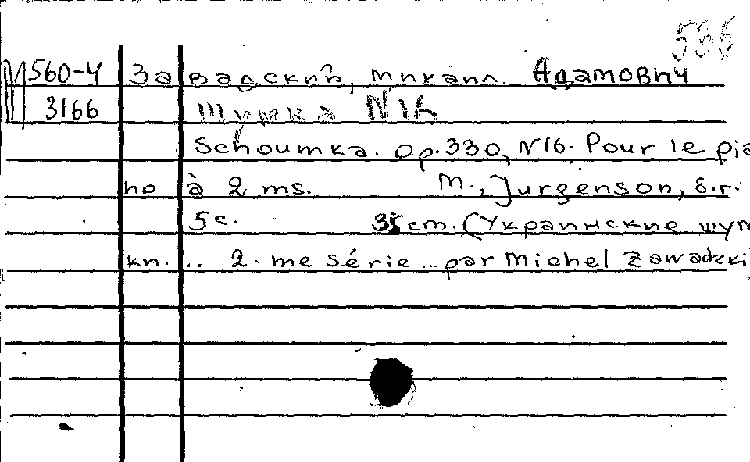 535
М 560-4 Завадский, Михаил Адамович
3166 Шумка №16
Schoumka. Op.330, №16. Pour le pia
no à 2 ms. М., Jurgenson, б.г.
5с. 35 cm. (Украинские шум
ки. .. 2. me série .. par Michel Zawadzki